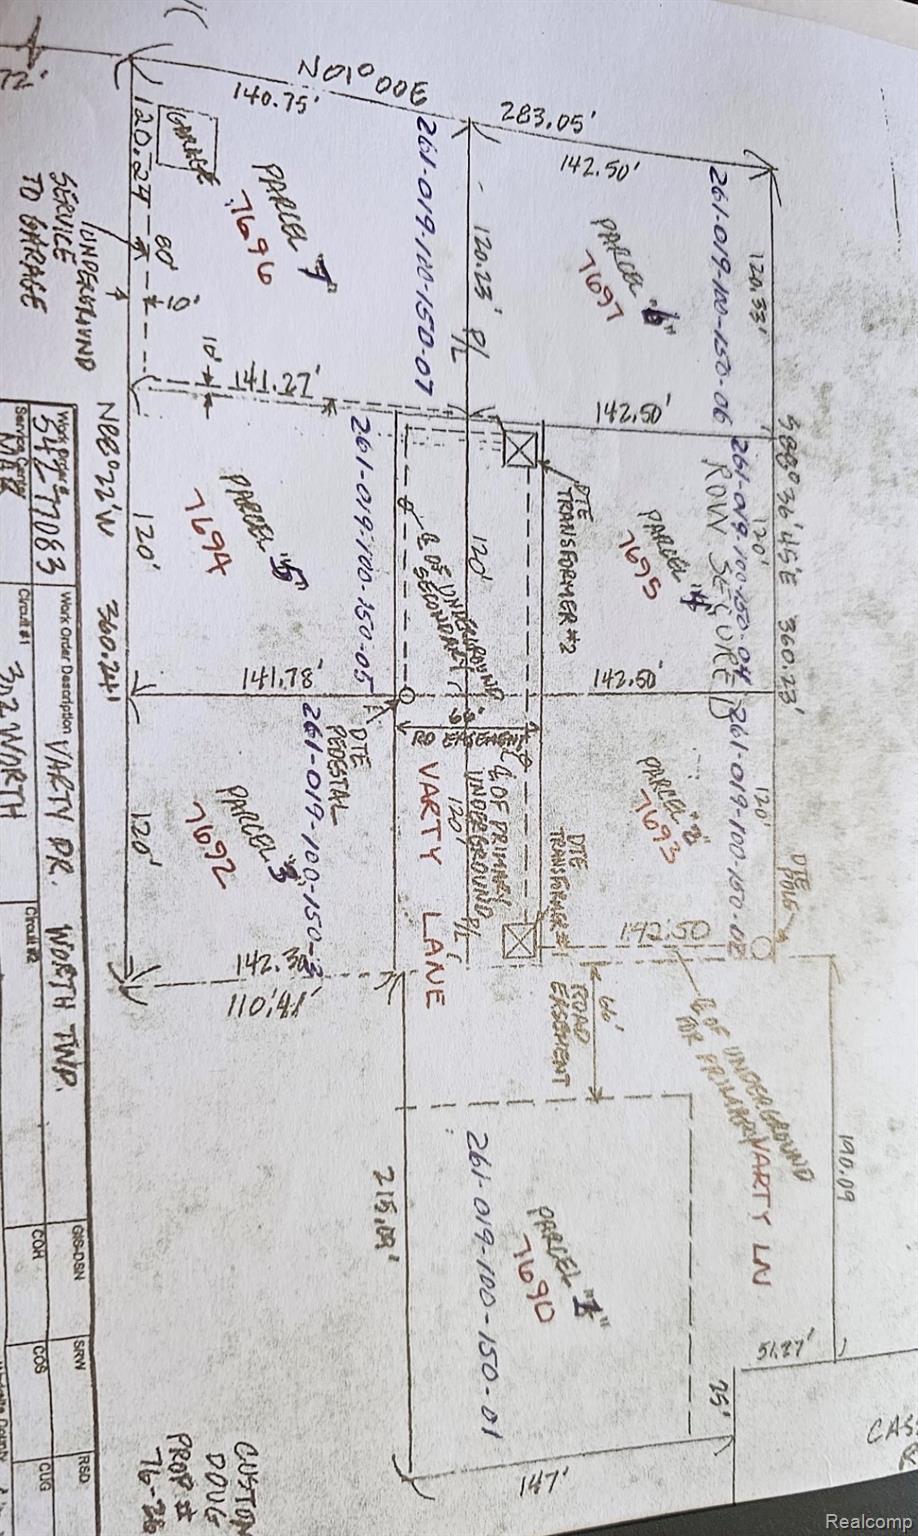 72'
N01°00E
140.75'
283.05'
142.50'
120.27
GARAGE
PARCEL "7"
7696
261-019-100-150-07
120.23'
P/L
PARCEL "6"
7697
261-019-100-150-06
120.33'
UNDERGROUND
SERVICE
TO GARAGE
80'
10'
10'
141.27'
142.50'
S88°36'45"E 360.23'
N88°22'W 360.24'
120'
PARCEL "5"
7694
261-019-100-150-05
℄ OF UNDERGROUND
SECONDARY
120'
DTE
TRANSFORMER #2
PARCEL "4"
7695
261-019-100-150-04
ROW SECURED
120'
141.78'
142.50'
DTE
PEDESTAL
120'
PARCEL "3"
7692
261-019-100-150-3
VARTY LANE
℄ OF PRIMARY
UNDERGROUND
120'
P/L
DTE
TRANSFORMER #1
PARCEL "2"
7693
261-019-100-150-02
120'
DTE
POLE
142.50
110.41'
66'
ROAD
EASEMENT
℄ OF UNDERGROUND
FOR PRIMARY
VARTY LN
190.09
215.09'
PARCEL "1"
7690
261-019-100-150-01
51.27'
25'
147'
Work Order #
54277083
Work Order Description
VARTY DR. WORTH TWP.
Service Center
Circuit #1
Circuit #2
GIS-DSN
SRW
RSD
COH
COS
CUG
DOUG
PROP #
Realcomp